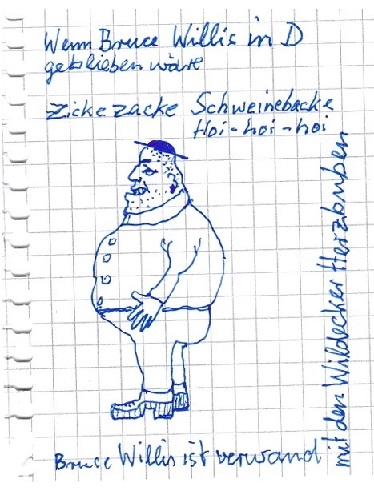 Wenn Bruce Willis in D
geblieben wäre
Zicke zacke Schweinebacke
Hoi-hoi-hoi
Bruce Willis ist verwand
mit den Wildecker Herzbuben